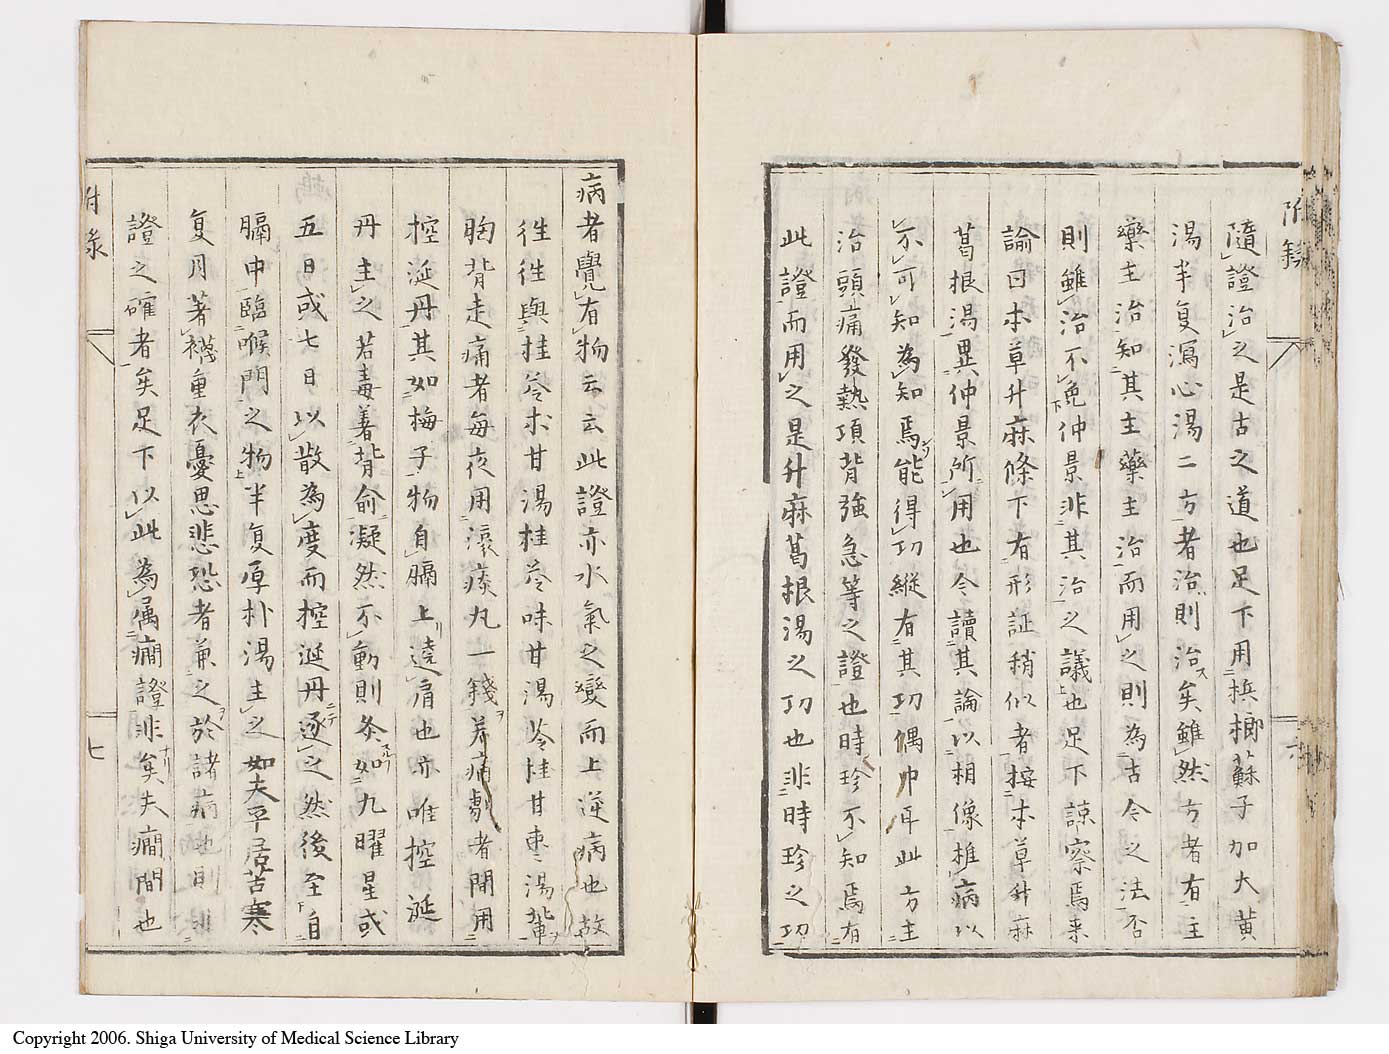 附錄
隨證治之是古之道也足下用檳榔蘇子加大黃
湯半复瀉心湯二方者治則治矣雖然方者有主
藥主治知其主藥主治而用之則為古今之法否
則雖治不免仲景非其治之議也足下諒察焉来
諭曰本草升麻條下有形証稍似者按本草升麻
葛根湯異仲景所用也今讀其論以相像推病以
不可知為知焉能得功縱有其功偶中耳此方主
治頭痛發熱項背強急等之證也時珍不知焉有
此證而用之是升麻葛根湯之功也非時珍之功
病者覺有物云云此證亦水氣之變而上逆病也故
徃徃與桂苓朮甘湯桂苓味甘湯苓桂甘棗湯輩
胸背走痛者每夜用滾痰丸一錢若痛劇者間用
控涎丹其如梅子物自膈上遶肩也亦唯控涎
丹主之若毒著背俞凝然不動則灸如九曜星或
五日或七日以散為度而控涎丹逐之然後至自
膈中臨喉門之物半复厚朴湯主之如夫平居苦寒
复月著襪重衣憂思悲恐者兼之於諸病也則非
證之確者矣足下以此為属癇證非矣夫癇間也
附錄
七
Copyright 2006. Shiga University of Medical Science Library